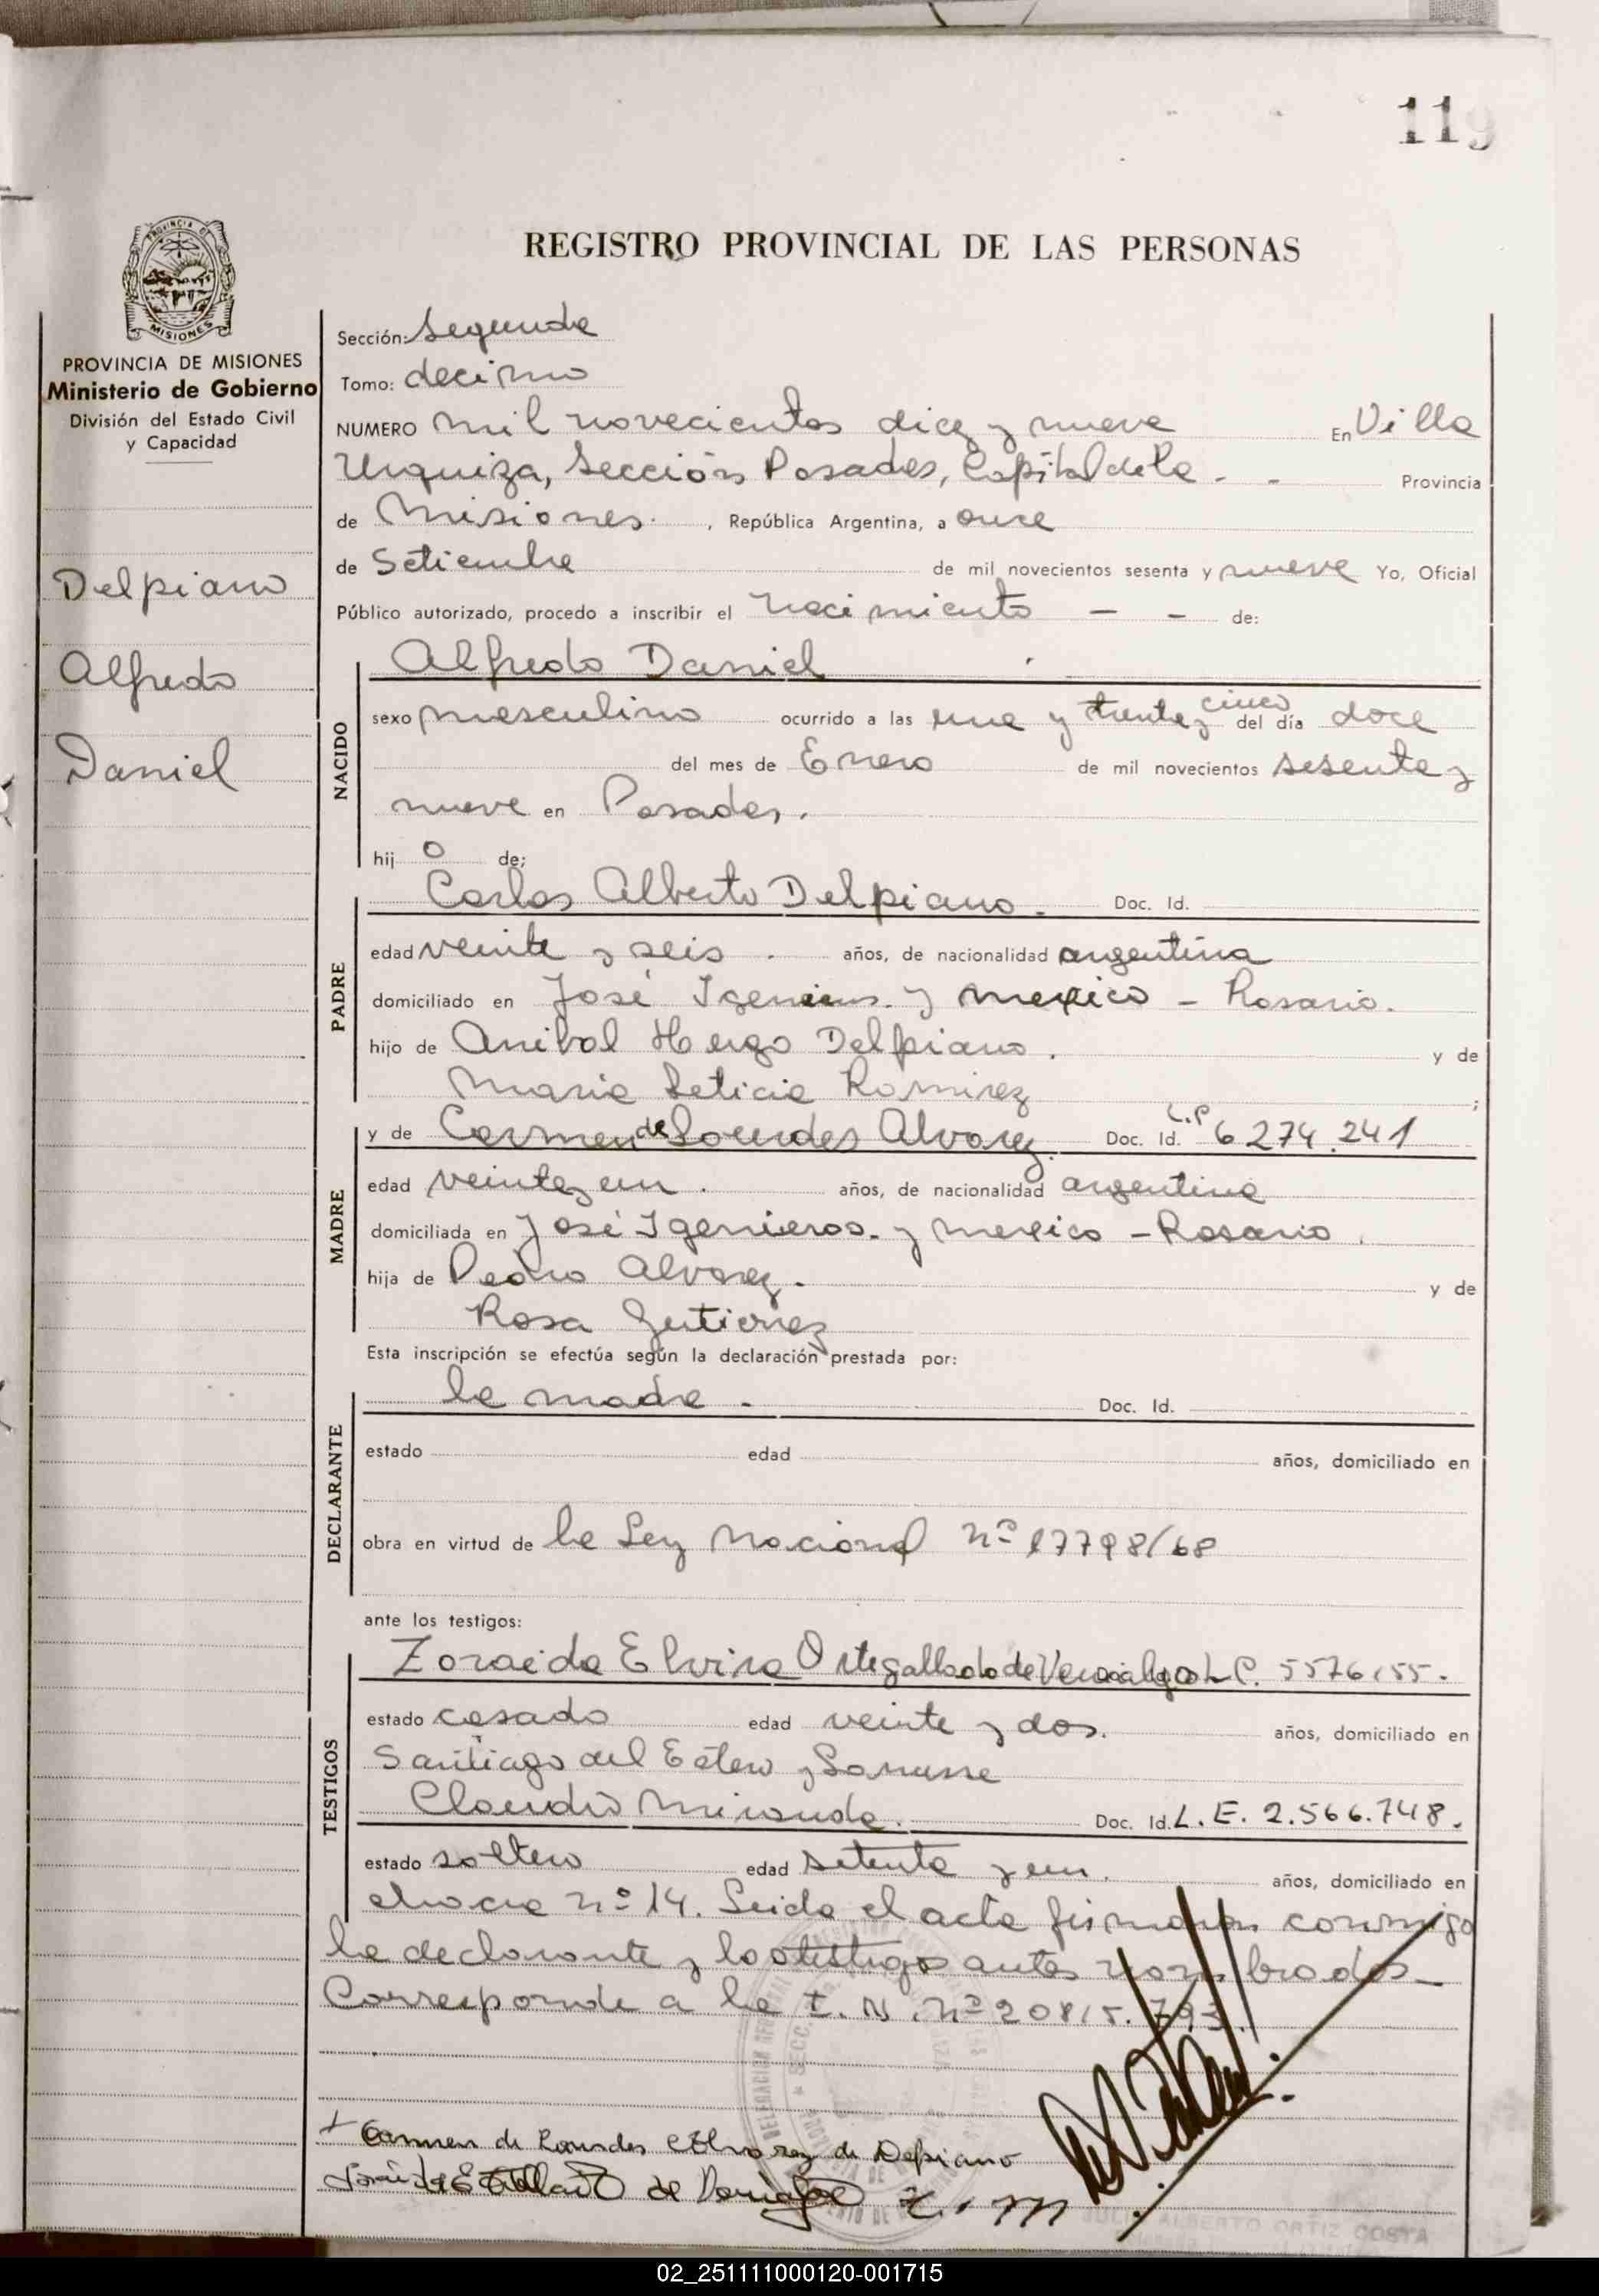 119
REGISTRO PROVINCIAL DE LAS PERSONAS
PROVINCIA DE MISIONES
Ministerio de Gobierno
División del Estado Civil
y Capacidad
Delpiano
Alfredo
Daniel
Sección: Segunda
Tomo: decimo
NUMERO mil novecientos diez y nueve En Villa
Urquiza, Sección Posadas, Capital de la - - Provincia
de Misiones. , República Argentina, a once
de Setiembre de mil novecientos sesenta y nueve Yo, Oficial
Público autorizado, procedo a inscribir el nacimiento - - de:
NACIDO
Alfredo Daniel
sexo masculino ocurrido a las una y treinta y cinco del día doce
del mes de Enero de mil novecientos sesenta y
nueve en Posadas.
hij o de:
PADRE
Carlos Alberto Delpiano. Doc. Id.
edad veinte y seis . años, de nacionalidad argentina
domiciliado en José Igenieros y mexico - Rosario.
hijo de Anibal Hugo Delpiano . y de
Maria Leticia Ramirez ;
MADRE
y de Carmen de Lourdes Alvarez. Doc. Id. L.C 6274.241
edad veinte y un . años, de nacionalidad argentina
domiciliada en José Igenieros. y mexico - Rosario .
hija de Pedro Alvarez. y de
Rosa Gutierrez
Esta inscripción se efectúa según la declaración prestada por:
DECLARANTE
la madre . Doc. Id.
estado edad años, domiciliado en
obra en virtud de la Ley Nacional nº 17798/68
ante los testigos:
TESTIGOS
Zoraida Elvira de L.C. 5576155.
estado casado edad veinte y dos. años, domiciliado en
Santiago del Estero y Lanusse
Claudio Miranda. Doc. Id. L.E. 2.566.748.
estado soltero edad setenta y un . años, domiciliado en
chacra nº 14. Leida el acta firmaron conmigo
la declarante y los testigos antes nombrados-
Corresponde a la L. N. nº 20815.793.
Carmen de Lourdes Alvarez de Delpiano
ALBERTO ORTIZ COSTA
02_251111000120-001715